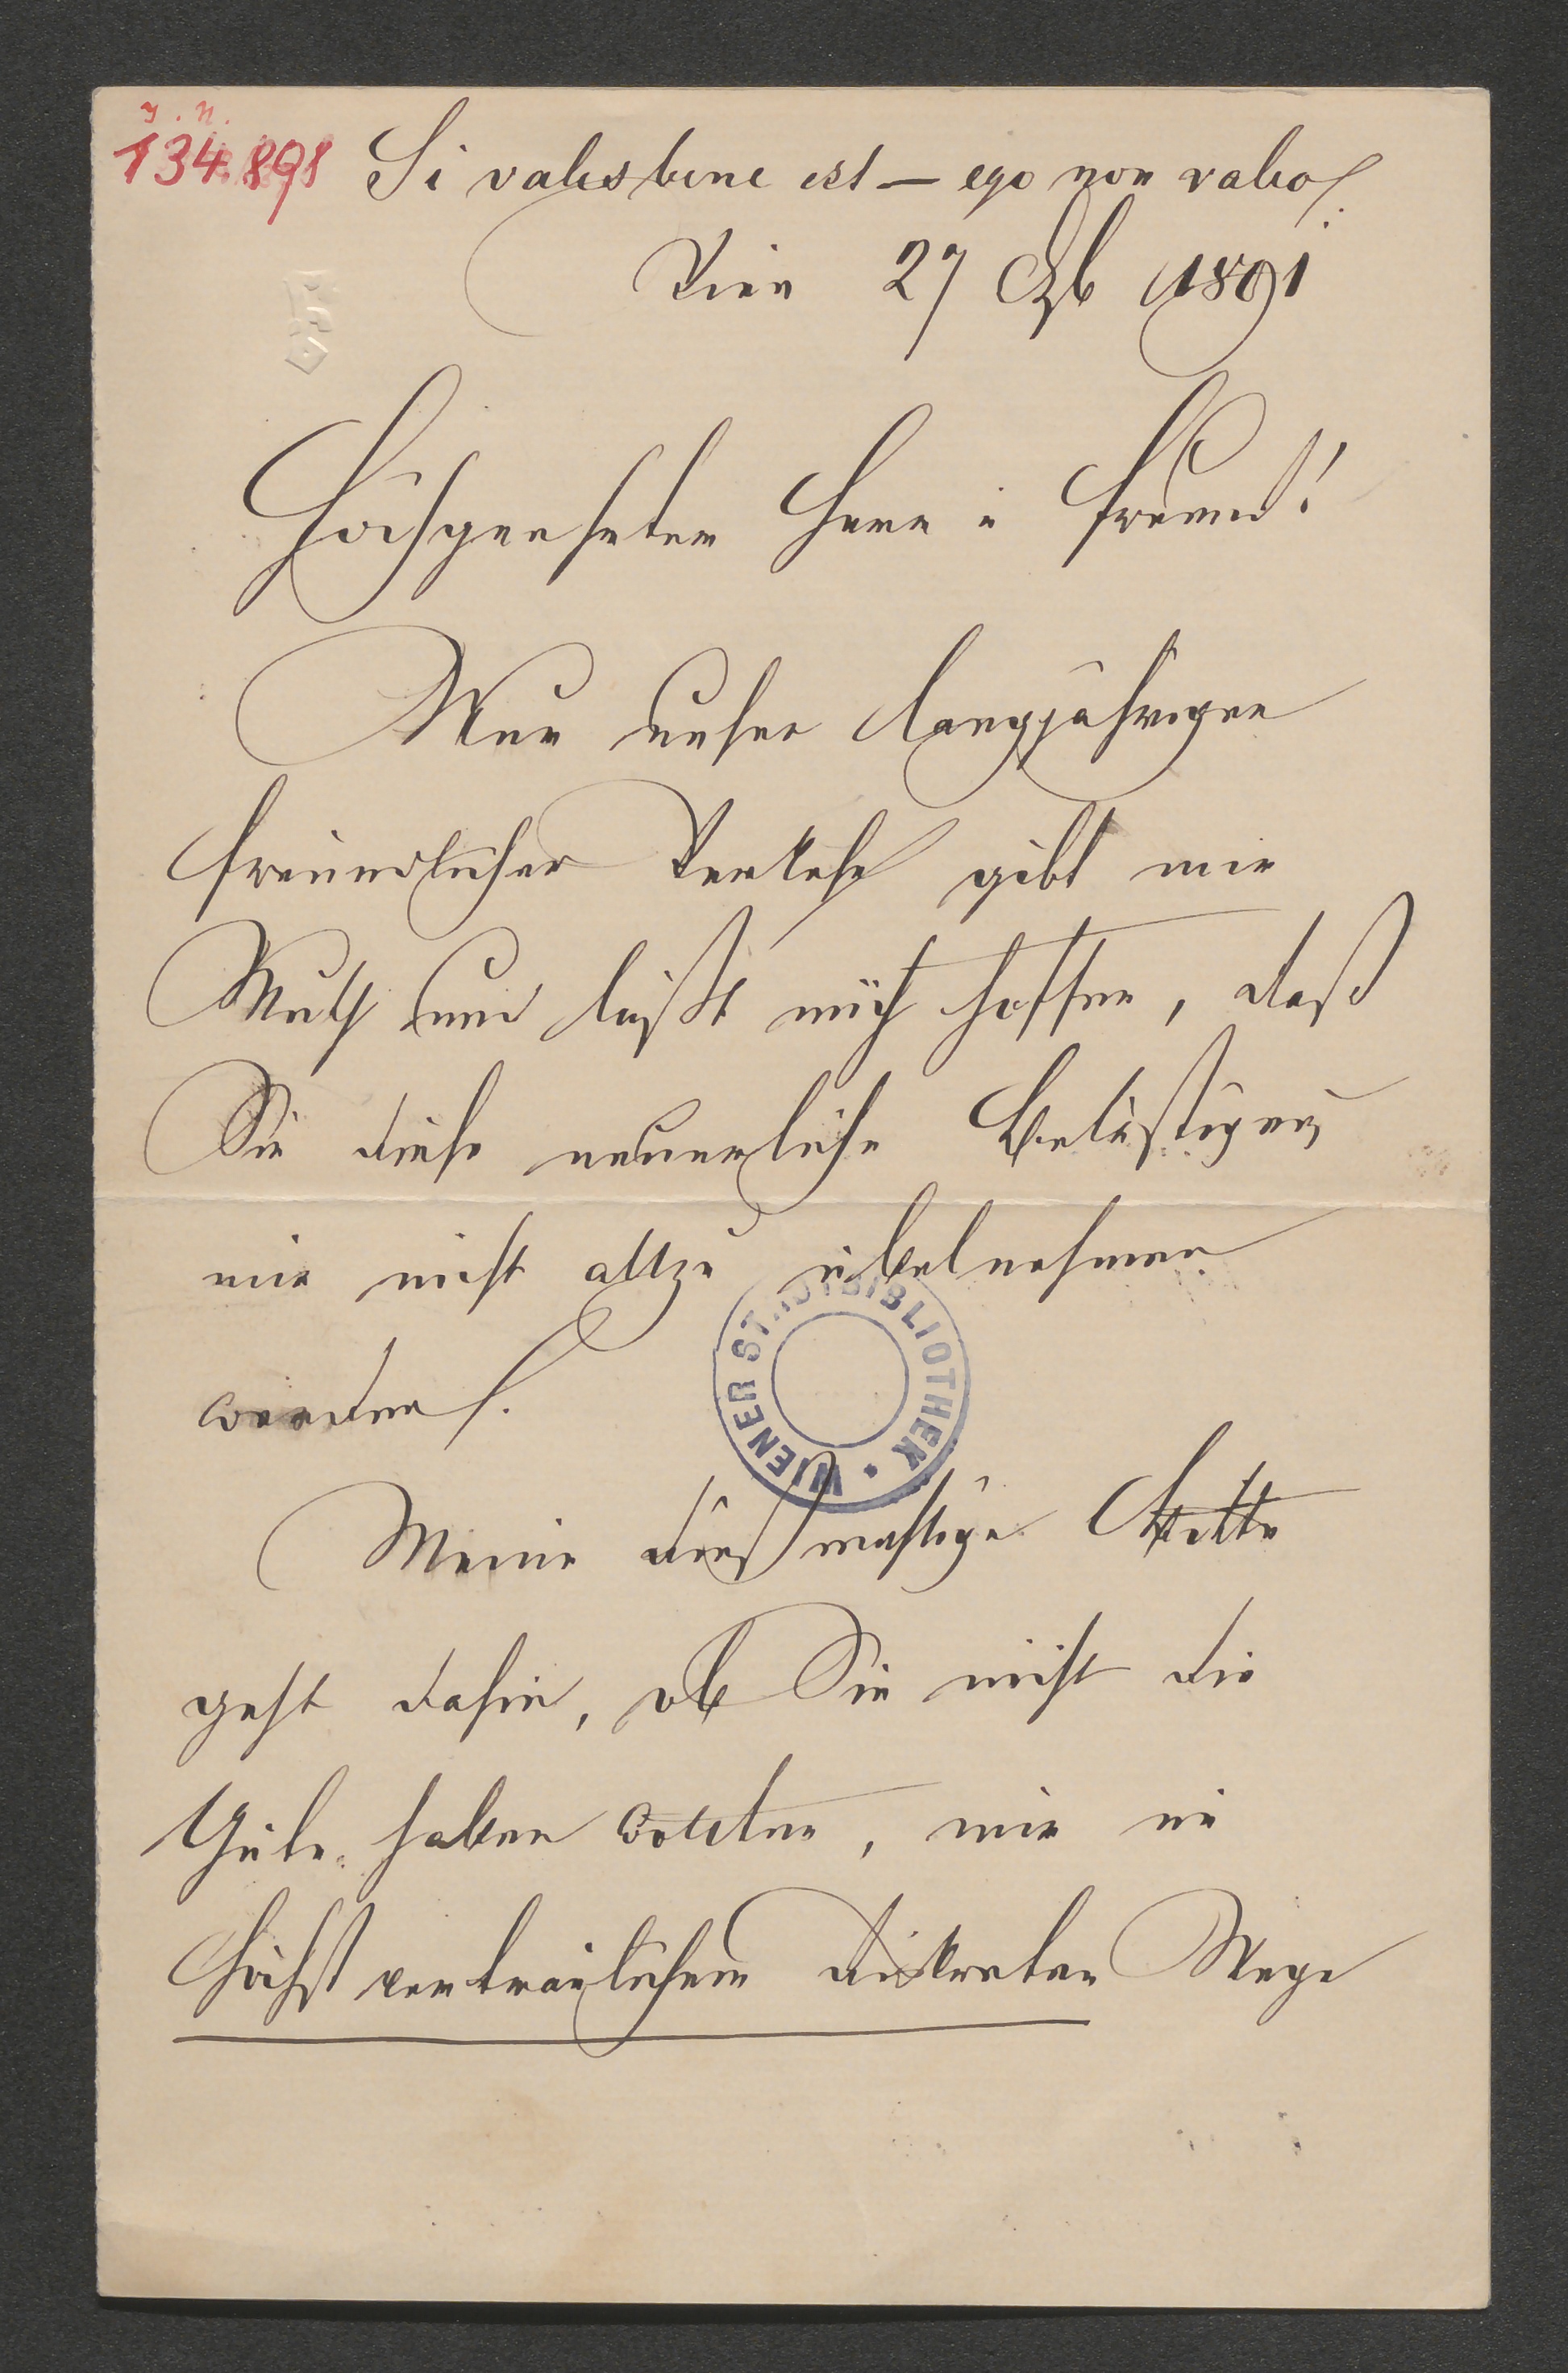 J. N.
134.898
Si vales bene est — ego non valeo.
Wien 27 Ozb 1891
Hochgeehrter Herr u Freund!
Nur unser langjähriger
freundlicher Verkehr gibt mir
Muth und läßt mich hoffen, daß
Sie diese neuerliche Belästigung
mir nicht allzu übelnehmen
werden.
WIENER STADTBIBLIOTHEK
Meine dießmalige Bitte
geht dahin, ob Sie nicht die
Güte haben wollten, mir im
höchst vertraulichem diskreten Wege